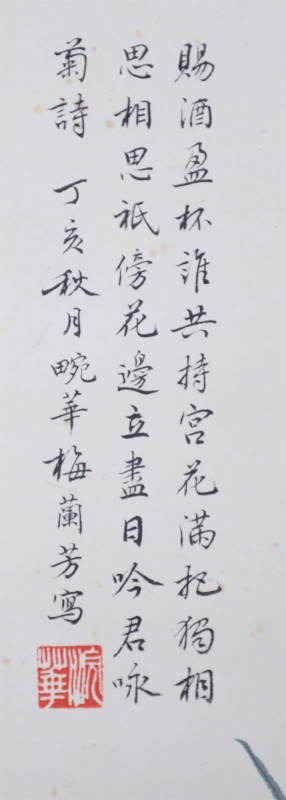 賜酒盈杯誰共持宮花滿把獨相
思相思祇傍花邊立盡日吟君咏
菊詩　丁亥秋月畹華梅蘭芳寫
畹華